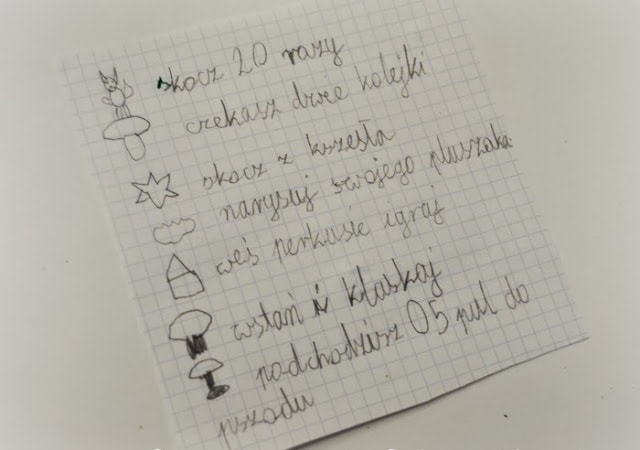 skocz 20 razy
czekasz dwie kolejki
skocz z kszesła
narysuj swojego pluszaka
weś perkusie i graj
wstań i klaskaj
podchodzisz 05 pul do
pszodu